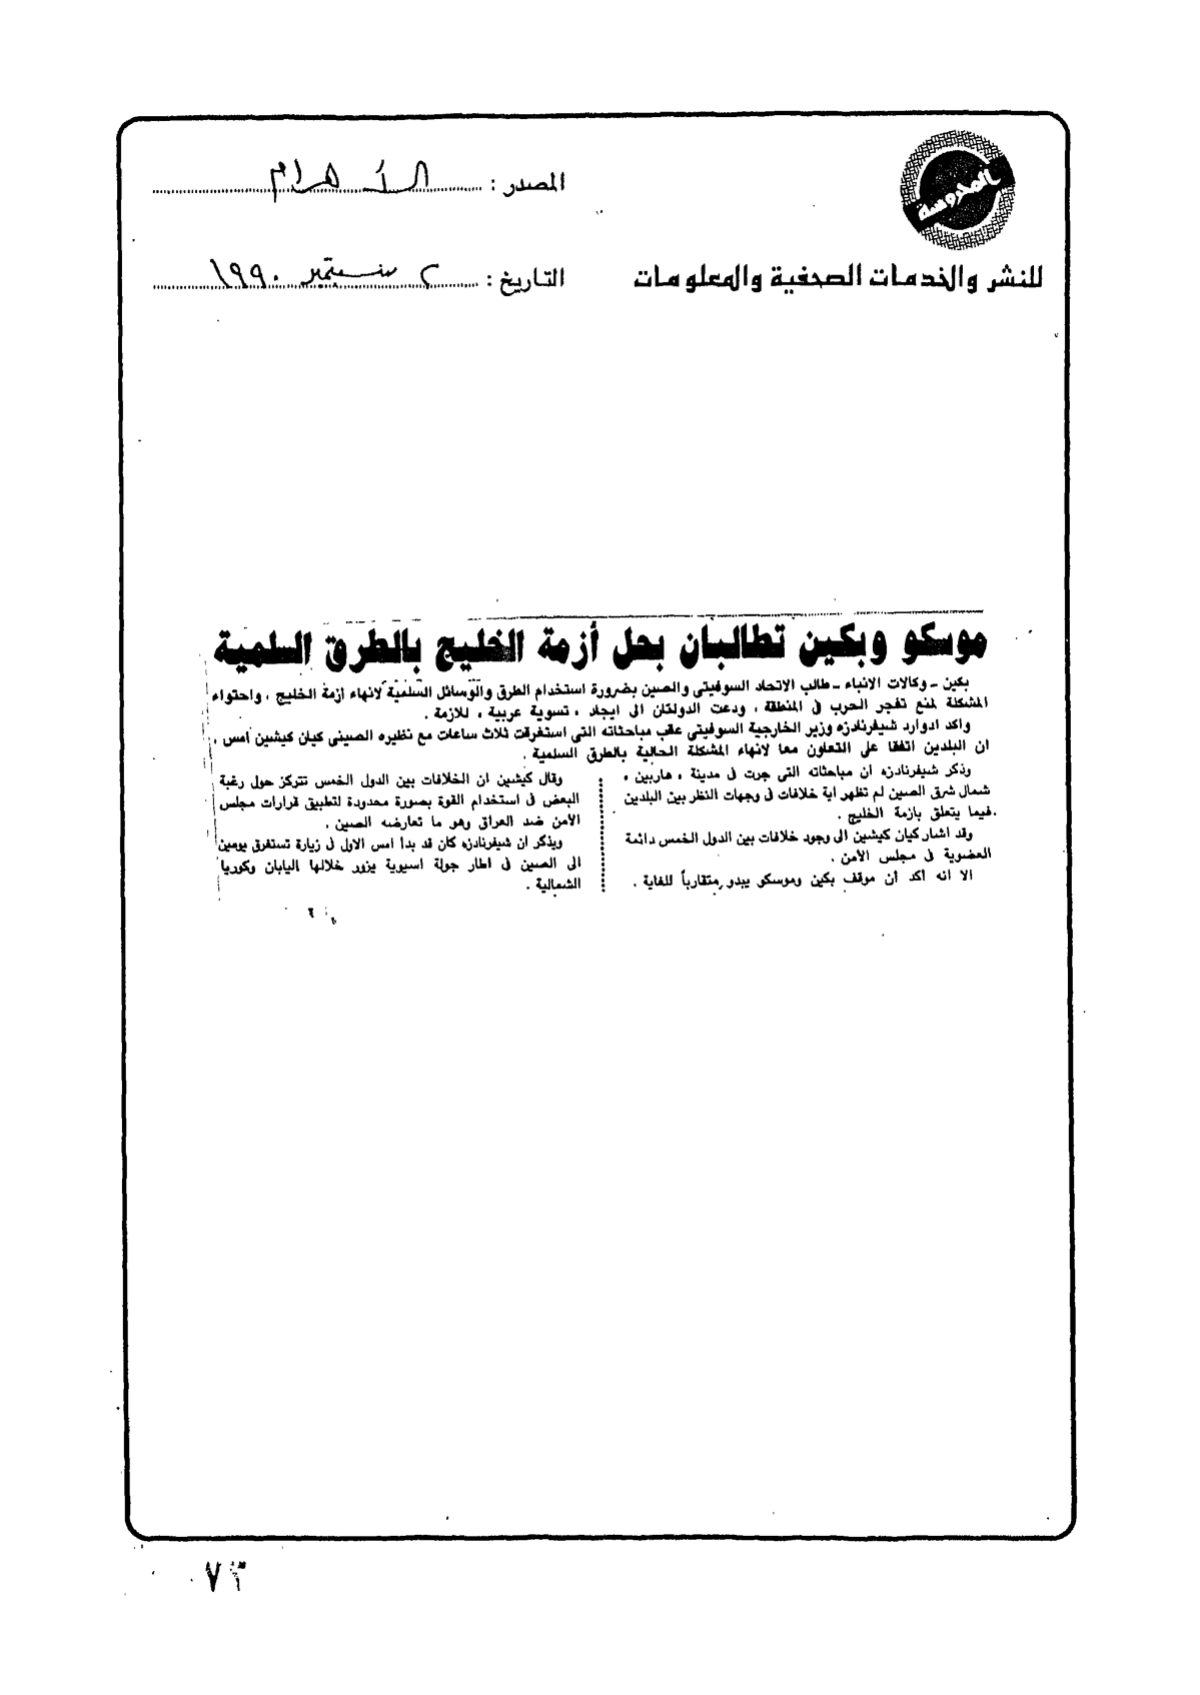 المحروسة
المصدر : الأهرام
للنشر والخدمات الصحفية والمعلومات
التاريخ : ٢ سبتمبر ١٩٩٠
موسكو وبكين تطالبان بحل أزمة الخليج بالطرق السلمية
بكين ـ وكالات الانباء ـ طالب الاتحاد السوفيتى والصين بضرورة استخدام الطرق والوسائل السلمية لانهاء ازمة الخليج ، واحتواء
المشكلة لمنع تفجر الحرب فى المنطقة ، ودعت الدولتان الى ايجاد « تسوية عربية » للازمة .
واكد ادوارد شيفرنادزه وزير الخارجية السوفيتى عقب مباحثاته التى استغرقت ثلاث ساعات مع نظيره الصينى كيان كيشين أمس ،
ان البلدين اتفقا على التعاون معا لانهاء المشكلة الحالية بالطرق السلمية .
وذكر شيفرنادزه ان مباحثاته التى جرت فى مدينة « هاربين »
شمال شرق الصين لم تظهر اية خلافات فى وجهات النظر بين البلدين
فيما يتعلق بازمة الخليج .
وقد اشار كيان كيشين الى وجود خلافات بين الدول الخمس دائمة
العضوية فى مجلس الأمن .
الا انه اكد ان موقف بكين وموسكو يبدو متقارباً للغاية .
وقال كيشين ان الخلافات بين الدول الخمس تتركز حول رغبة
البعض فى استخدام القوة بصورة محدودة لتطبيق قرارات مجلس
الأمن ضد العراق وهو ما تعارضه الصين .
ويذكر ان شيفرنادزه كان قد بدأ امس الاول فى زيارة تستغرق يومين
الى الصين فى اطار جولة اسيوية يزور خلالها اليابان وكوريا
الشمالية .